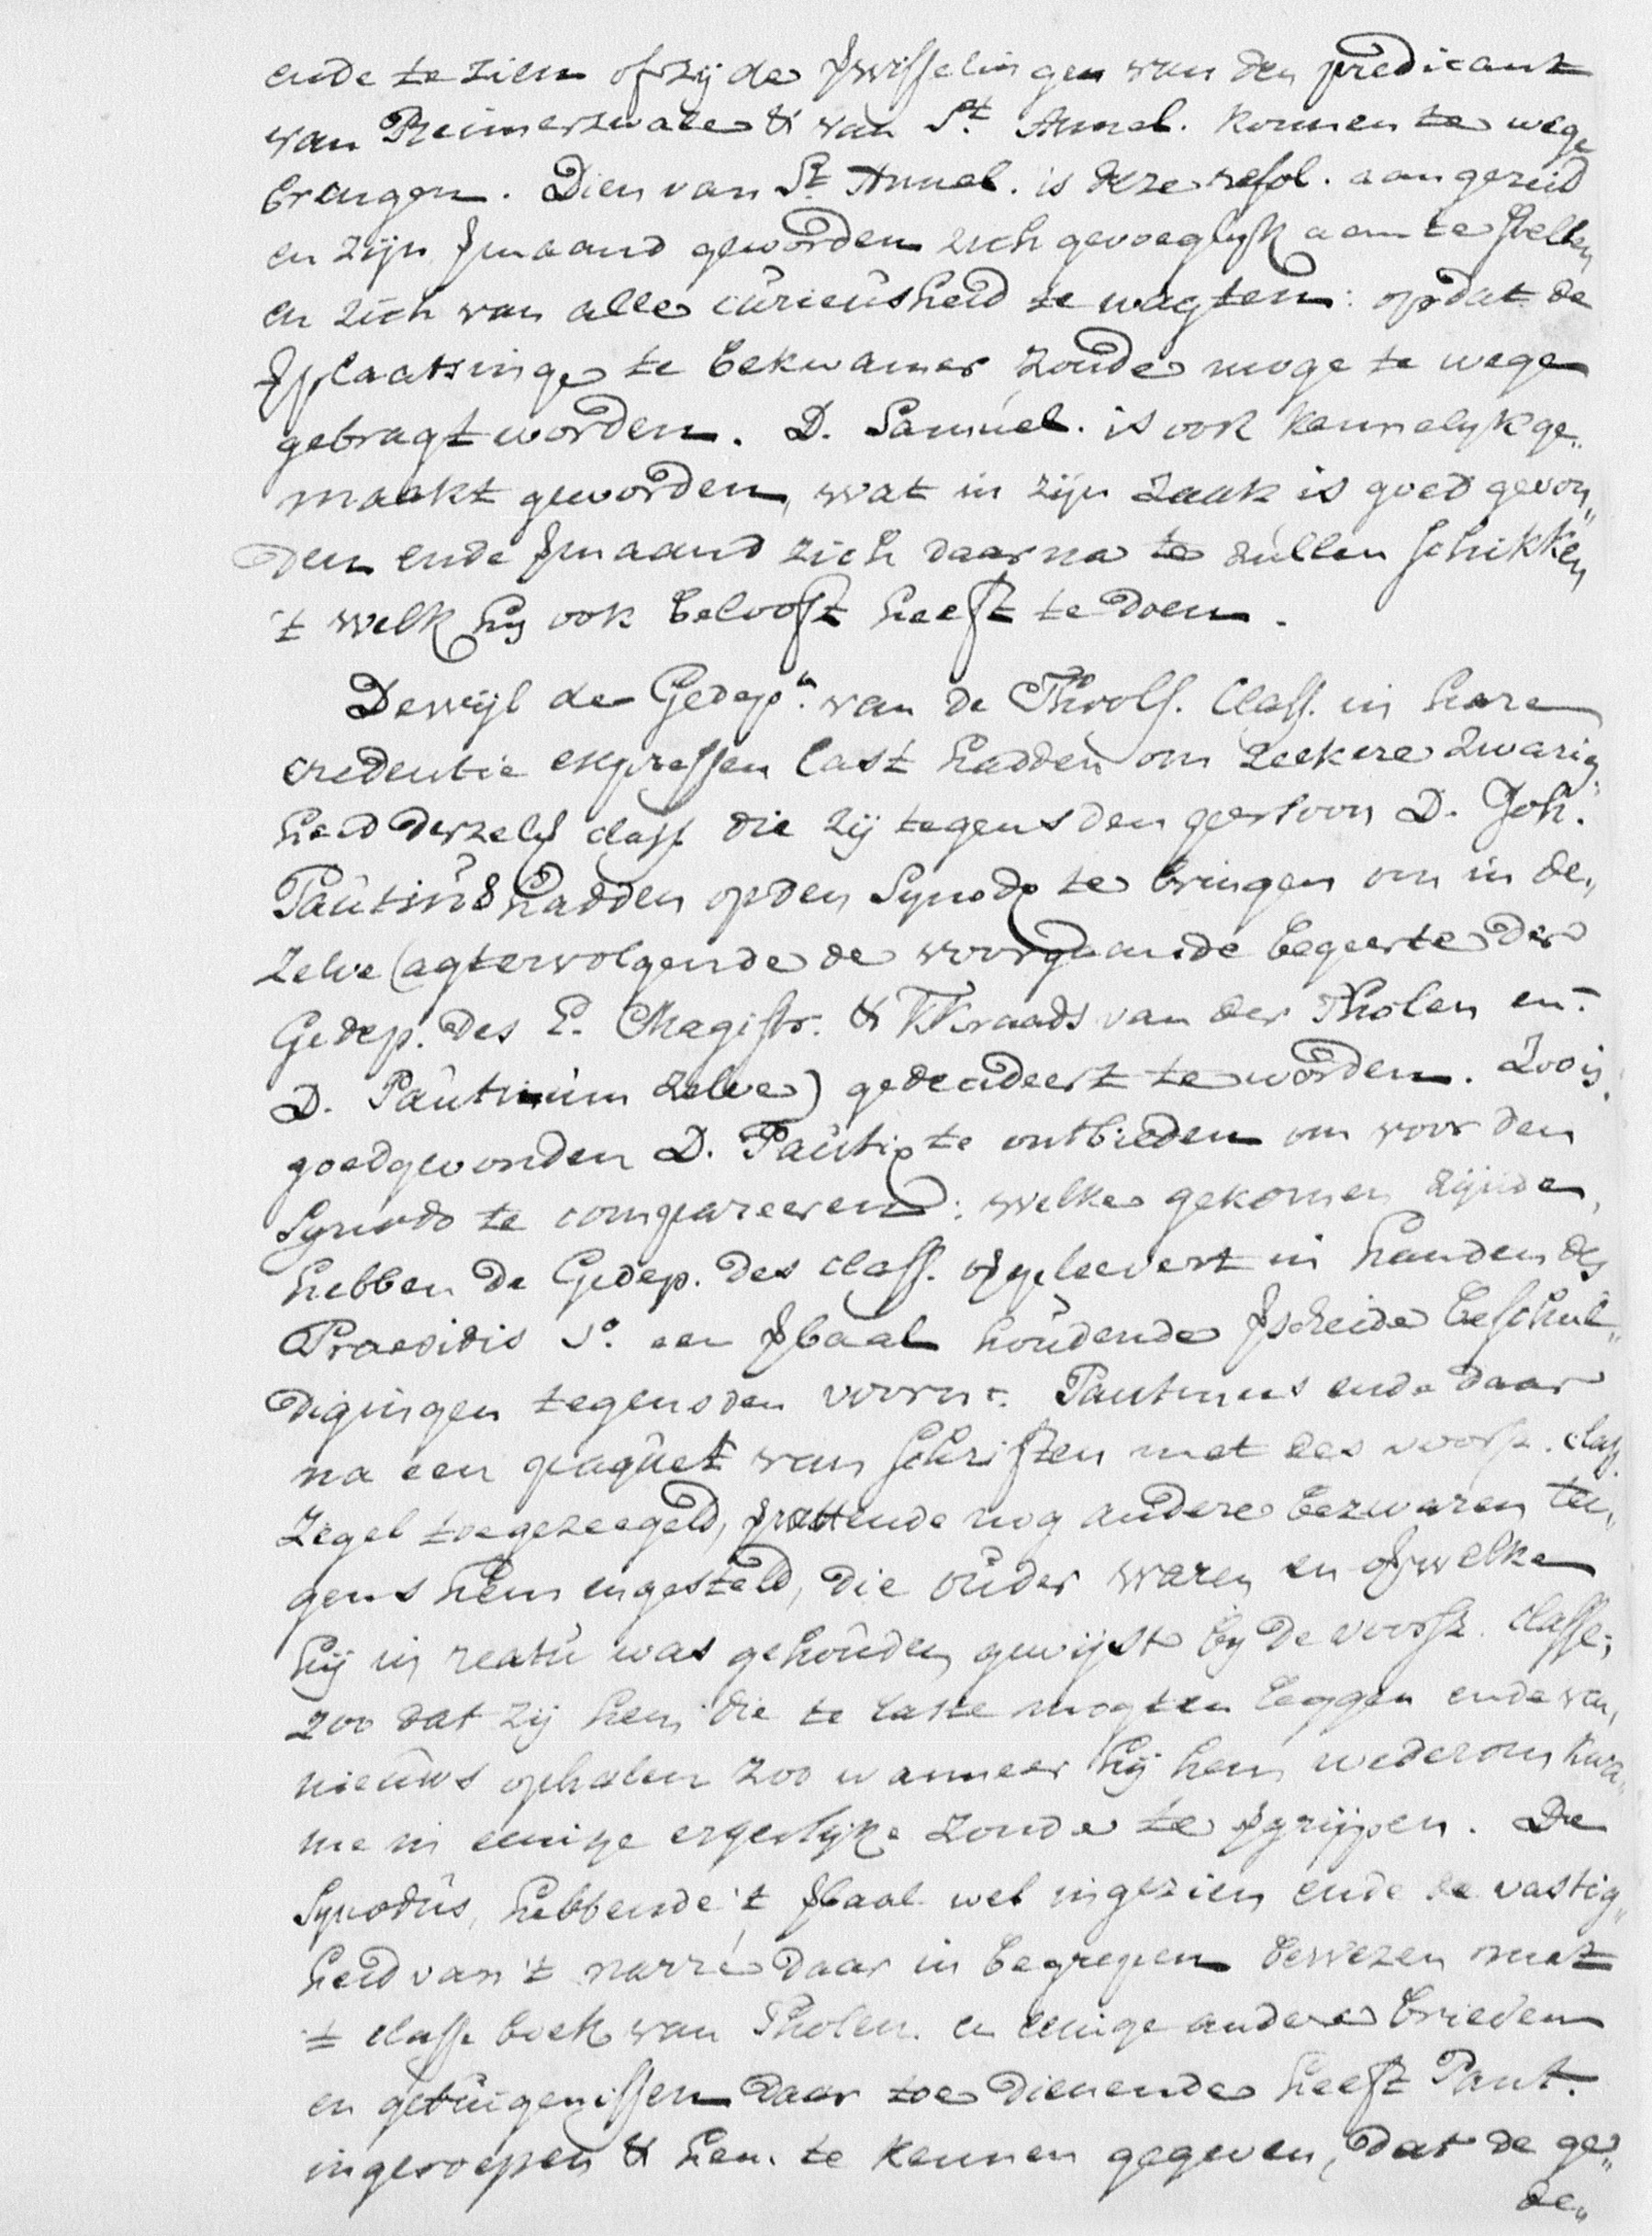 ende te zien of zij de ꝟwisselingen van den predicant
van Reimerswale & van St. Annal. konnen te wege
brengen. Dien van St. Annal. is deze resol. aangezeid
en zijn ꝟmaand geworden zich gevoeglijk aan te stellen
en zich van alle curieusheid te wagten: opdat de
ꝟplaatsinge te bekwamer zoude moge te wege
gebragt worden. D. Samuel. is ook kennelyk ge„
maakt geworden, wat in zijn zaak is goed gevon„
den ende ꝟmaand zich daar na te zullen schikken
't welk hij ook belooft heeft te doen.
Dewijl de Gedep.n van de Thools. Class. in hare
credentie expressen last hadden om zeekere zwarig„
heid derzelf class. die zij tegens den persoon D. Joh.
Pautinus hadden op den Synodo te bringen om in de„
zelve (agtervolgende de voorgaande begeerte der
Gedep. des E. Magistr. & KKraads van der Tholen en
D. Pautinum zelve) gedecideert te worden. Zoo is
goedgevonden D. Pautin te ontbieden om voor den
Synodo te compareeren: welke gekomen zijnde,
hebben de Gedep. des class. opgeleevert in handen des
Praesidis 1o. een ꝟbaal houdende ꝟscheide beschul„
digingen tegens den voorn. Pautinus ende daar
na een paquet van schriften met des voors. class.
zegel toegezeegeld, ꝟvattende nog andere bezwaren te„
gens hem ingesteld, die ouder waren en op welke
hij in reatu was gehouden geweest by de voors. classe;
zoo dat zij hem die te laste mogten leggen ende van
nieuws ophalen zoo wanneer hij hem wederom kwa„
me in eenige ergerlyke zonde te ꝟgrijpen. De
Synodus, hebbende 't ꝟbaal wel ingezien ende de vastig„
heid van 't narré daar in begrepen bewezen met
't classe boek van Tholen en eenige andere brieven
en getuigenissen daar toe dienende heeft Paut.
ingeroepen & hem te kennen gegeven, dat de ge„
de„